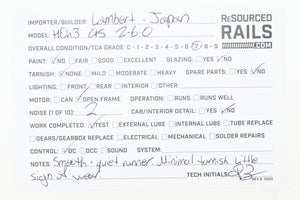 IMPORTER/BUILDER: Lambert - Japan
RESOURCED RAILS .COM
MODEL: HOn3 C-19 2-6-0
OVERALL CONDITION/TCA GRADE: C - 1 - 2 - 3 - 4 - 5 - 6 - 7 - 8 - 9
PAINT: NO FAIR GOOD EXCELLENT GLAZING: YES NO
TARNISH: NONE MILD MODERATE HEAVY SPARE PARTS: YES NO
LIGHTING: FRONT REAR INTERIOR OTHER:
MOTOR: CAN OPEN FRAME OPERATION: RUNS RUNS WELL
NOISE (1 OF 10): 2 CAB/INTERIOR DETAIL: YES NO
WORK COMPLETED: TEST EXTERNAL LUBE INTERNAL LUBE TUBE REPLACE
GEARS/GEARBOX REPLACE ELECTRICAL MECHANICAL SOLDER REPAIRS
CONTROL: DC DCC SOUND SYSTEM:
NOTES: Smooth - quiet runner. Minimal tarnish. Little
sign of wear. TECH INITIALS: